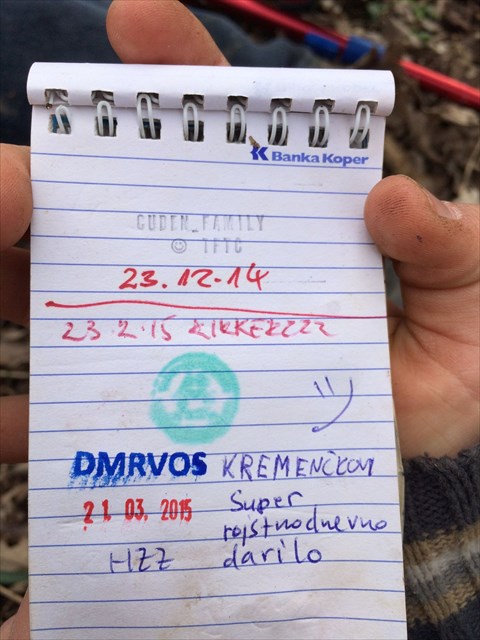 Banka Koper
CUDEN_FAMILY
TFTC
23.12.14
23.2.15 RIKKERZZZ
DMRVOS KREMENČKOVI
21. 03. 2015 Super
rojstnodnevno
HZZ darilo